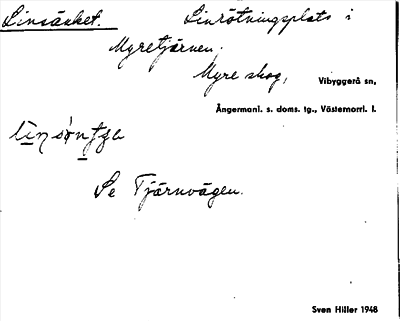 Linsänket. Linrötningsplats i
Myretjärnen.
Myre skog,
Vibyggerå sn,
Ångermanl. s. doms. tg., Västernorrl. l.
Se Tjärnvägen.
Sven Hiller 1948